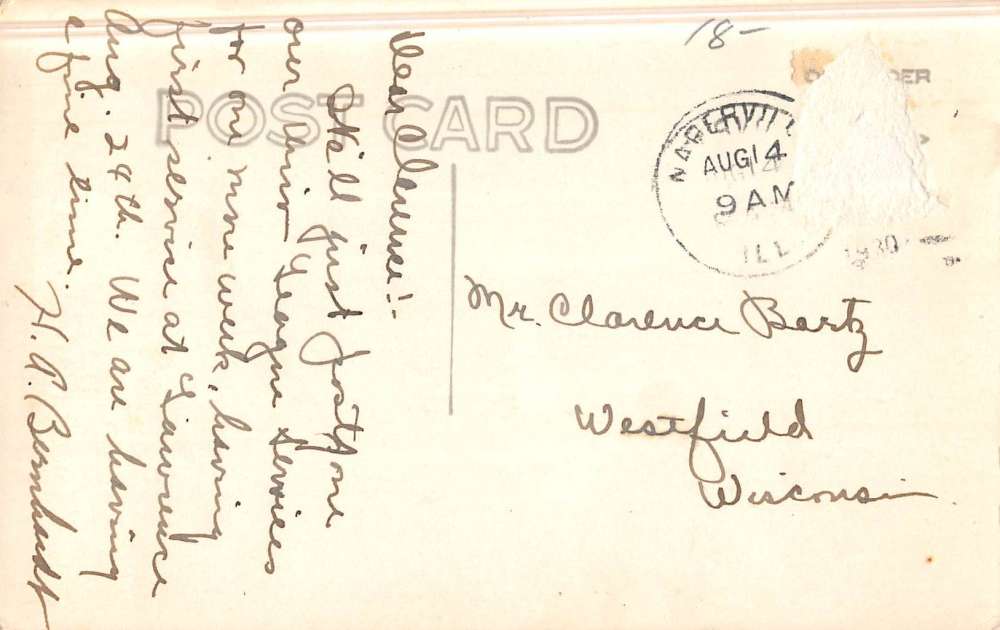 18-
POST CARD
DER
NAPERVILL
AUG 14
9 AM
ILL
1930
Dear Clarence:-
We'll just postpone
our Junior League Services
for one more week, having
first service at Lawrence
Aug. 24th. We are having
a fine time.
H. A. Bernhardt
Mr. Clarence Bartz
Westfield
Wisconsin